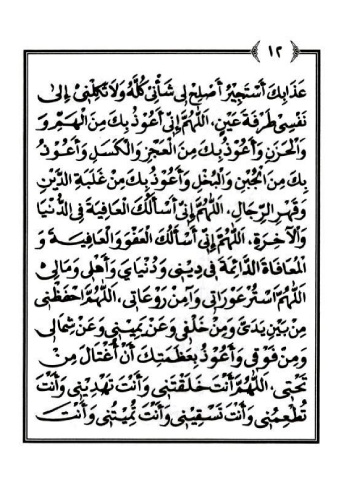 ١٢
عَذَابِكَ أَسْتَجِيْرُ أَصْلِحْ لِى شَأْنِى كُلَّهُ وَلَا تَكِلْنِىْ إِلٰى
نَفْسِىْ طَرْفَةَ عَيْنٍ، اَللّٰهُمَّ إِنِّى أَعُوْذُ بِكَ مِنَ الْهَمِّ وَ
وَالْحَزَنِ وَأَعُوْذُ بِكَ مِنَ الْعَجْزِ وَالْكَسَلِ وَأَعُوْذُ
بِكَ مِنَ الْجُبْنِ وَالْبُخْلِ وَأَعُوْذُ بِكَ مِنْ غَلَبَةِ الدَّيْنِ
وَقَهْرِ الرِّجَالِ، اَللّٰهُمَّ إِنِّى أَسْأَلُكَ الْعَافِيَةَ فِى الدُّنْيَا
وَالْآخِرَةِ، اَللّٰهُمَّ إِنِّى أَسْأَلُكَ الْعَفْوَ وَالْعَافِيَةَ وَ
الْمُعَافَاةَ الدَّائِمَةَ فِى دِيْنِى وَدُنْيَايَ وَأَهْلِى وَمَالِىْ
اَللّٰهُمَّ اسْتُرْ عَوْرَاتِى وَآمِنْ رَوْعَاتِى، اَللّٰهُمَّ احْفَظْنِى
مِنْ بَيْنِ يَدَىَّ وَمِنْ خَلْفِى وَعَنْ يَمِيْنِى وَعَنْ شِمَالِى
وَمِنْ فَوْقِى وَأَعُوْذُ بِعَظَمَتِكَ أَنْ أُغْتَالَ مِنْ
تَحْتِى، اَللّٰهُمَّ أَنْتَ خَلَقْتَنِى وَأَنْتَ تَهْدِيْنِى وَأَنْتَ
تُطْعِمُنِى وَأَنْتَ تَسْقِيْنِى وَأَنْتَ تُمِيْتُنِى وَأَنْتَ